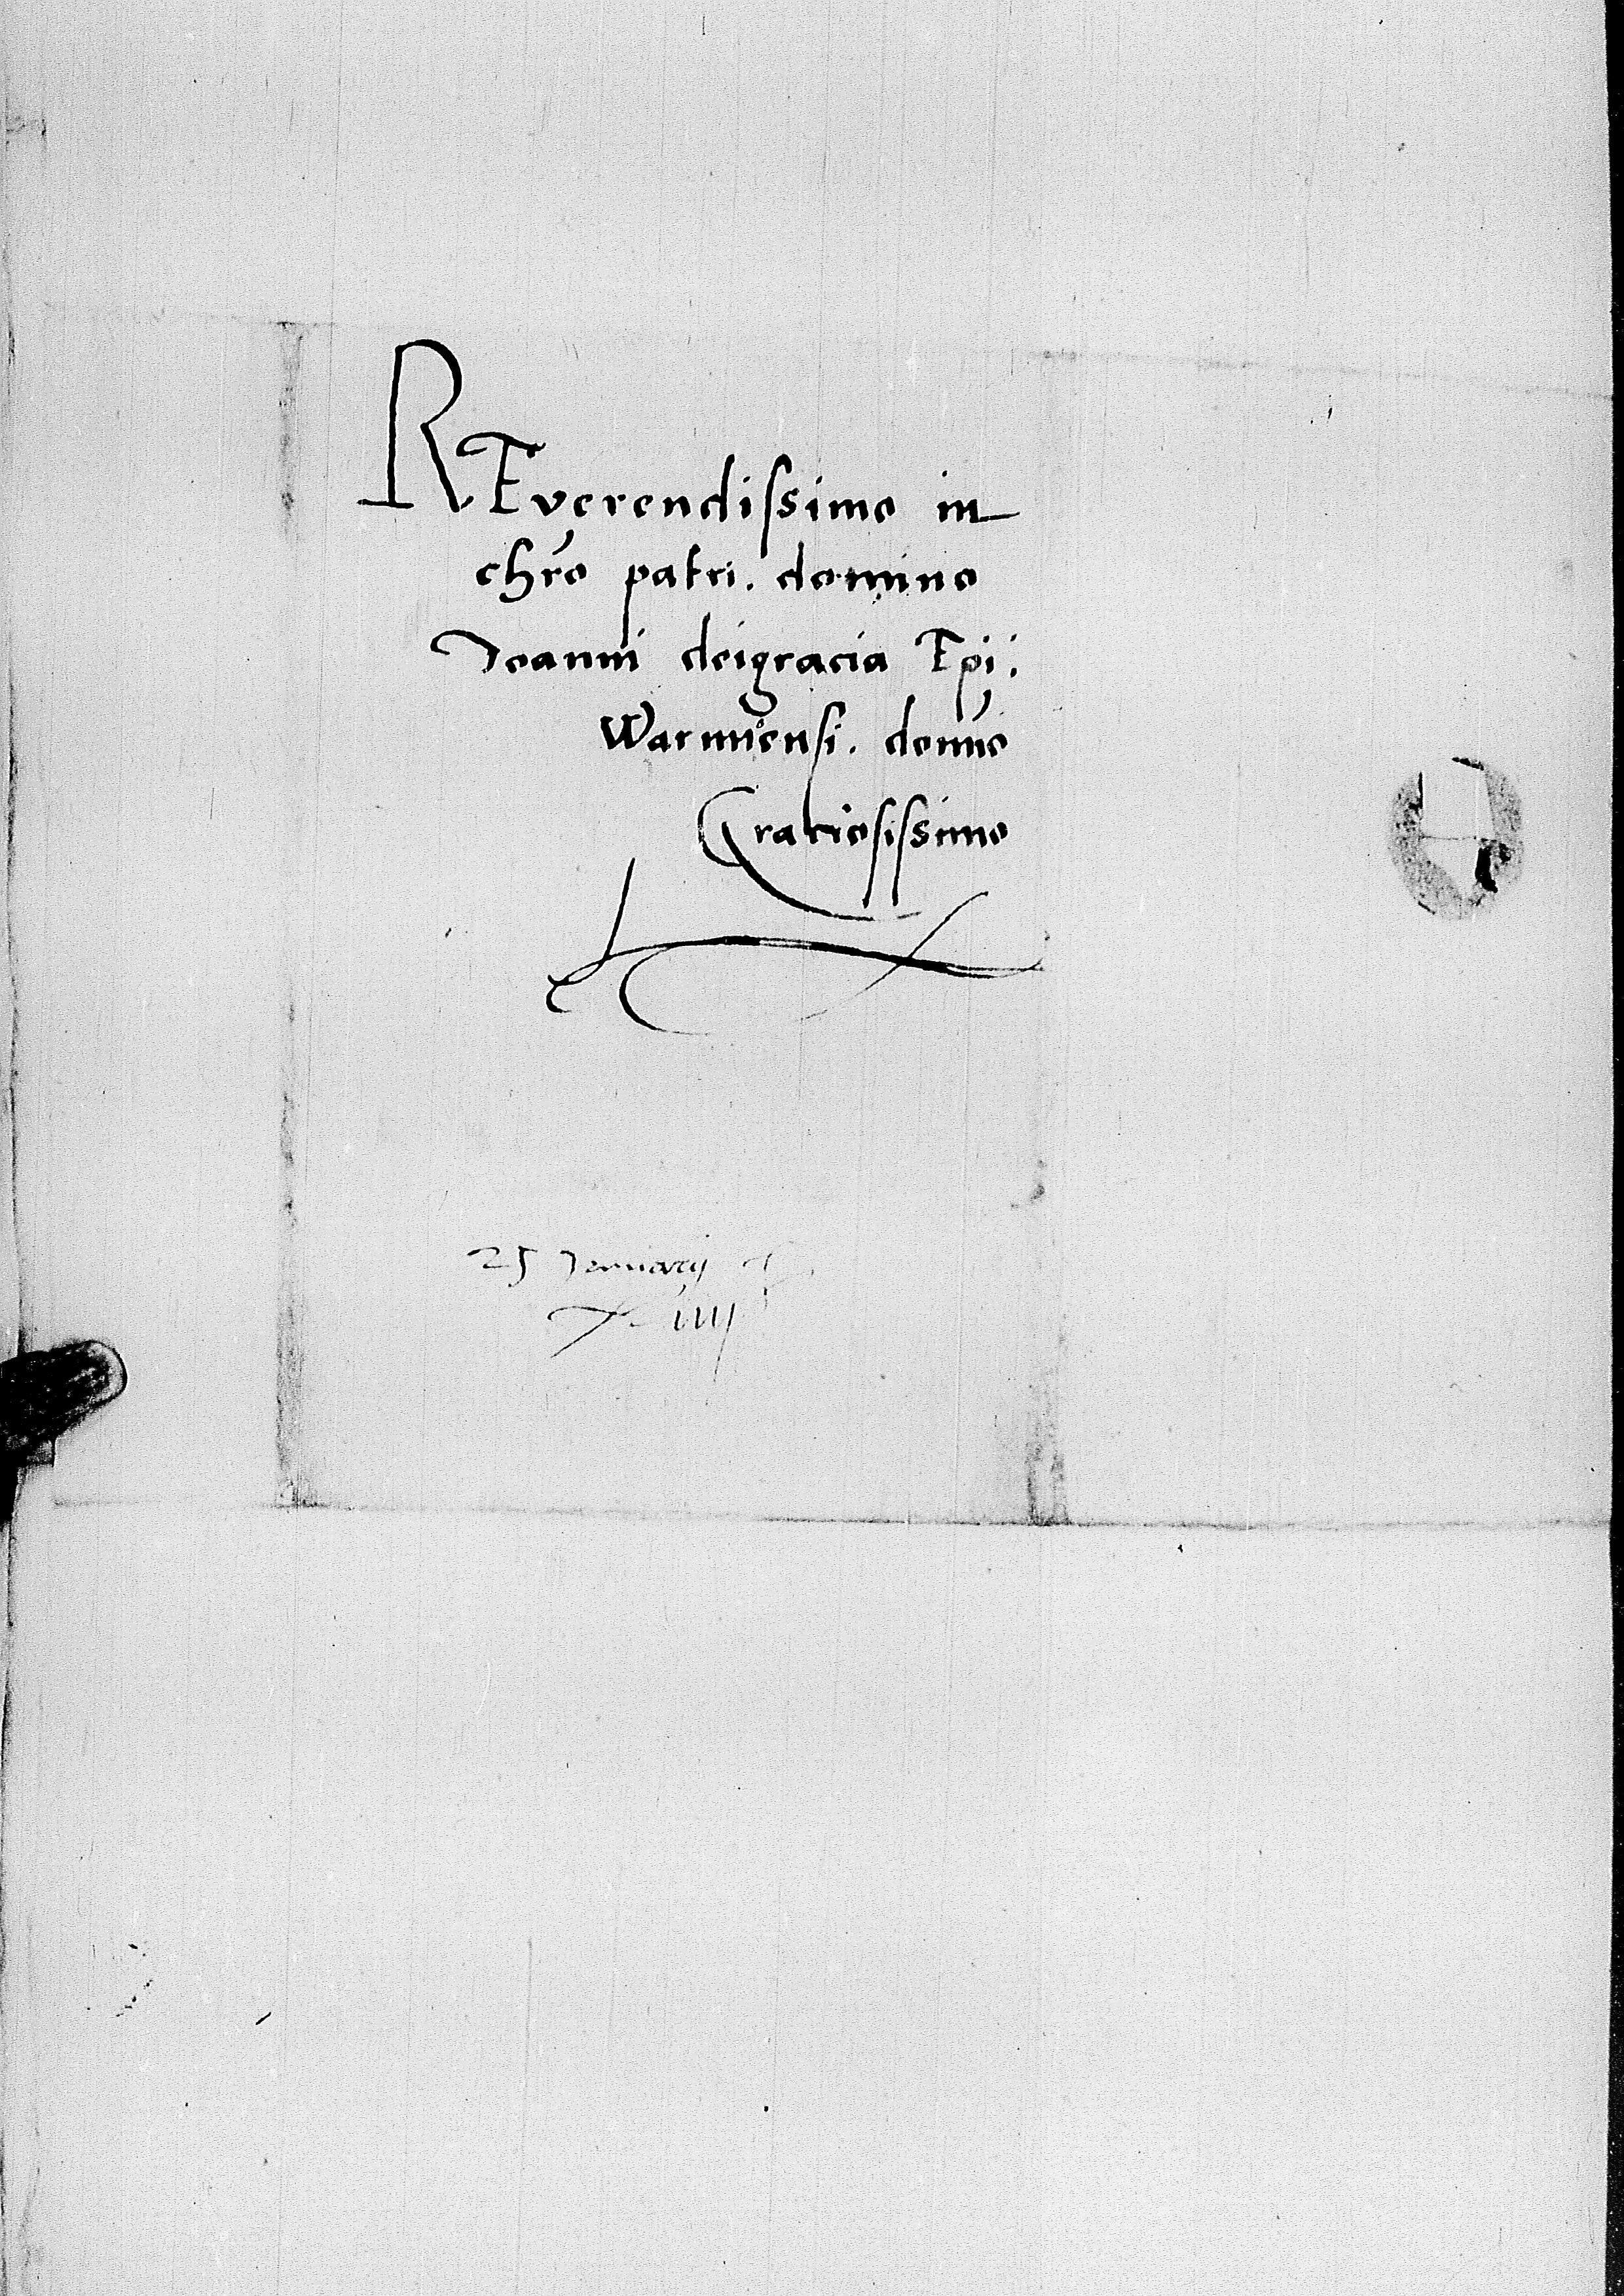 REverendissimo in
chro patri. domino
Joanni dei gracia Epi.
Warmiensi. domino
Gratiosissimo
25 Januarij